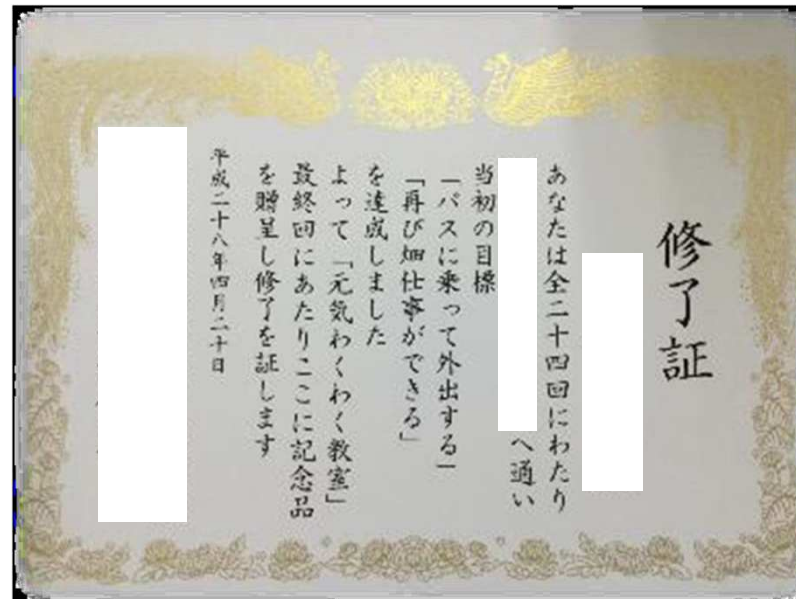 修了証
あなたは全二十四回にわたり
へ通い
当初の目標
「バスに乗って外出する」
「再び畑仕事ができる」
を達成しました
よって「元気わくわく教室」
最終回にあたりここに記念品
を贈呈し修了を証します
平成二十八年四月二十日